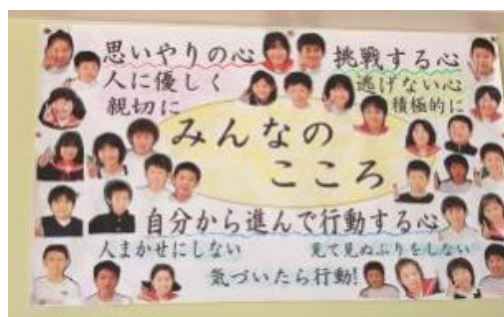 思いやりの心
人に優しく
親切に
挑戦する心
逃げない心
積極的に
みんなの
こころ
自分から進んで行動する心
人まかせにしない
見て見ぬふりをしない
気づいたら行動!